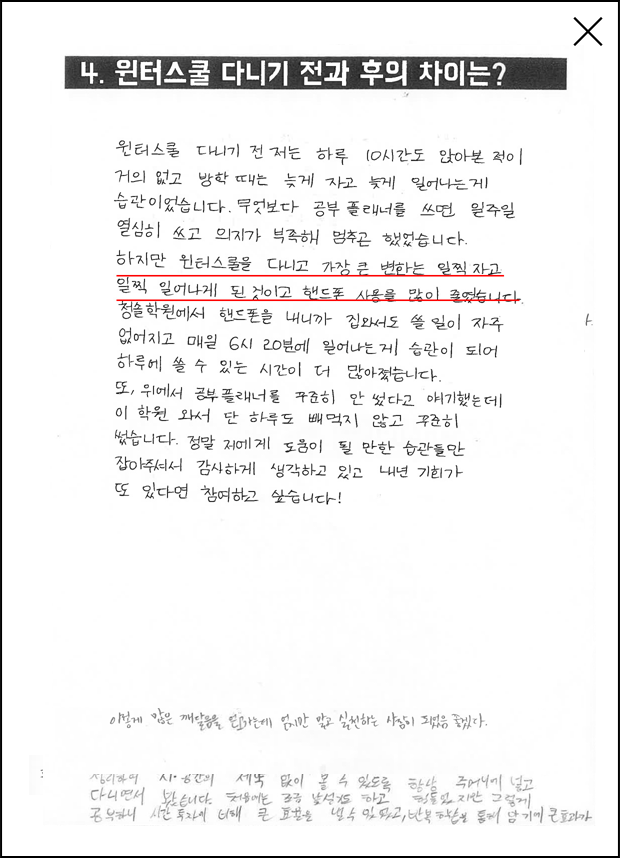 4. 윈터스쿨 다니기 전과 후의 차이는?
윈터스쿨 다니기 전 저는 하루 10시간도 앉아본 적이
거의 없고 방학 때는 늦게 자고 늦게 일어나는게
습관이었습니다. 무엇보다 공부 플래너를 쓰면 일주일
열심히 쓰고 의지가 부족해 멈추곤 했었습니다.
하지만 윈터스쿨을 다니고 가장 큰 변화는 일찍 자고
일찍 일어나게 된 것이고 핸드폰 사용을 많이 줄였습니다.
청솔학원에서 핸드폰을 내니까 집와서도 쓸 일이 자주
없어지고 매일 6시 20분에 일어나는게 습관이 되어
하루에 쓸 수 있는 시간이 더 많아졌습니다.
또, 위에서 공부플래너를 꾸준히 안 썼다고 얘기했는데
이 학원 와서 단 하루도 빼먹지 않고 꾸준히
썼습니다. 정말 저에게 도움이 될 만한 습관들만
잡아주셔서 감사하게 생각하고 있고 내년 기회가
또 있다면 참여하고 싶습니다!
이렇게 많은 깨달음을 얻고가는데 잊지만 말고 실천하는 사람이 되었음 좋겠다.
정리하여 시·공간의 제약 없이 볼 수 있도록 항상 주머니에 넣고
다니면서 봤습니다. 처음에는 조금 낯설기도 하고 힘들었지만 그렇게
공부하니 시간 투자에 비해 큰 효율을 낼 수 있었고, 반복 학습을 통해 단기에 큰 효과가